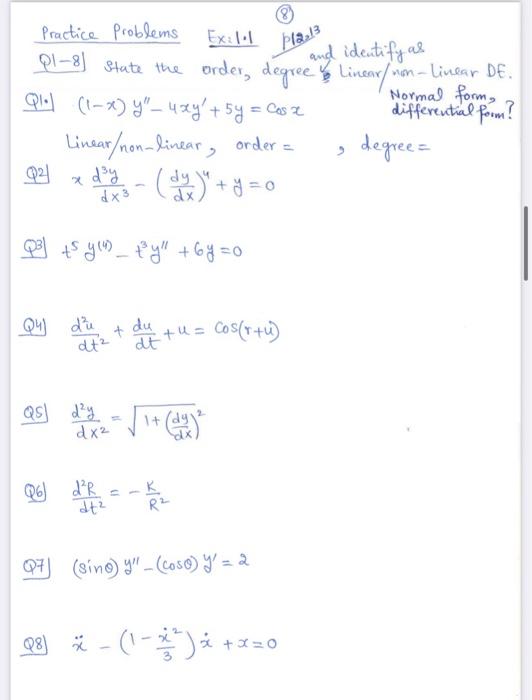 8
Practice Problems Ex:1.1 P12,13
Q1-8] State the order, degree & and identify as Linear/non-Linear DE.
Normal form, differential form?
Q1.] (1-x) y" - 4xy' + 5y = Cos x
Linear/non-linear, order = , degree =
Q2] x d³y/dx³ - (dy/dx)⁴ + y = 0
Q3] t⁵ y⁽⁴⁾ - t³y" + 6y = 0
Q4] d²u/dt² + du/dt + u = Cos(r+u)
Q5] d²y/dx² = √(1+(dy/dx)²)
Q6] d²R/dt² = - K/R²
Q7] (sinθ) y" - (cosθ) y' = 2
Q8] ẍ - (1 - ẋ²/3) ẋ + x = 0